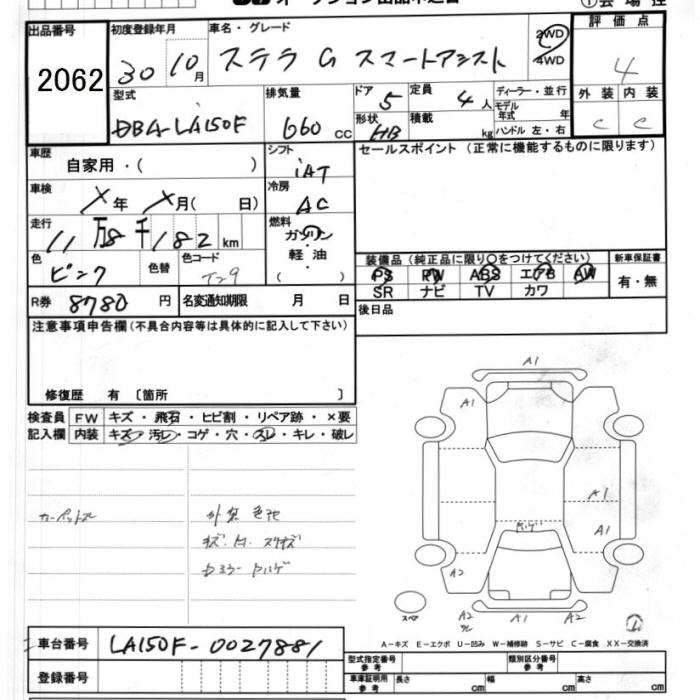 オークション出品申込書
①会場控
出品番号 2062
初度登録年月 30 10月
車名・グレード ステラ G スマートアシスト
2WD
4WD
評価点 4
外装 C 内装 C
型式 DBA-LA150F
排気量 660 CC
ドア 5
形状 HB
定員 4 人
積載 kg
ディーラー・並行
モデル年式 年
ハンドル 左・右
車歴 自家用・( )
車検 X年 X月( 日)
走行 11万8千182km
色 ピンク 色替 色コード T29
R券 8780 円 名変通知期限 月 日
シフト iAT
冷房 AC
燃料 ガソリン
軽・油
( )
セールスポイント (正常に機能するものに限ります)
装備品 (純正品に限り○をつけてください)
PS PW ABS エアB AW
SR ナビ TV カワ
新車保証書
有・無
後日品
注意事項申告欄(不具合内容等は具体的に記入して下さい)
修復歴 有 〔箇所 〕
検査員記入欄
FW キズ・飛石・ヒビ割・リペア跡・×要
内装 キズ・汚レ・コゲ・穴・スレ・キレ・破レ
カーペットスレ
外装 色セ
キズ・A・スリキズ
Dミラー Pハゲ
A1
A1
A1
A1
Pハゲ
A2
A2
A1
A2
スペア
A-キズ E-エクボ U-凹み W-補修跡 S-サビ C-腐食 XX-交換済
車台番号 LA150F-0027881
登録番号
型式指定番号 参考
類別区分番号 参考
車庫証明用 参考 長さ cm 幅 cm 高さ cm